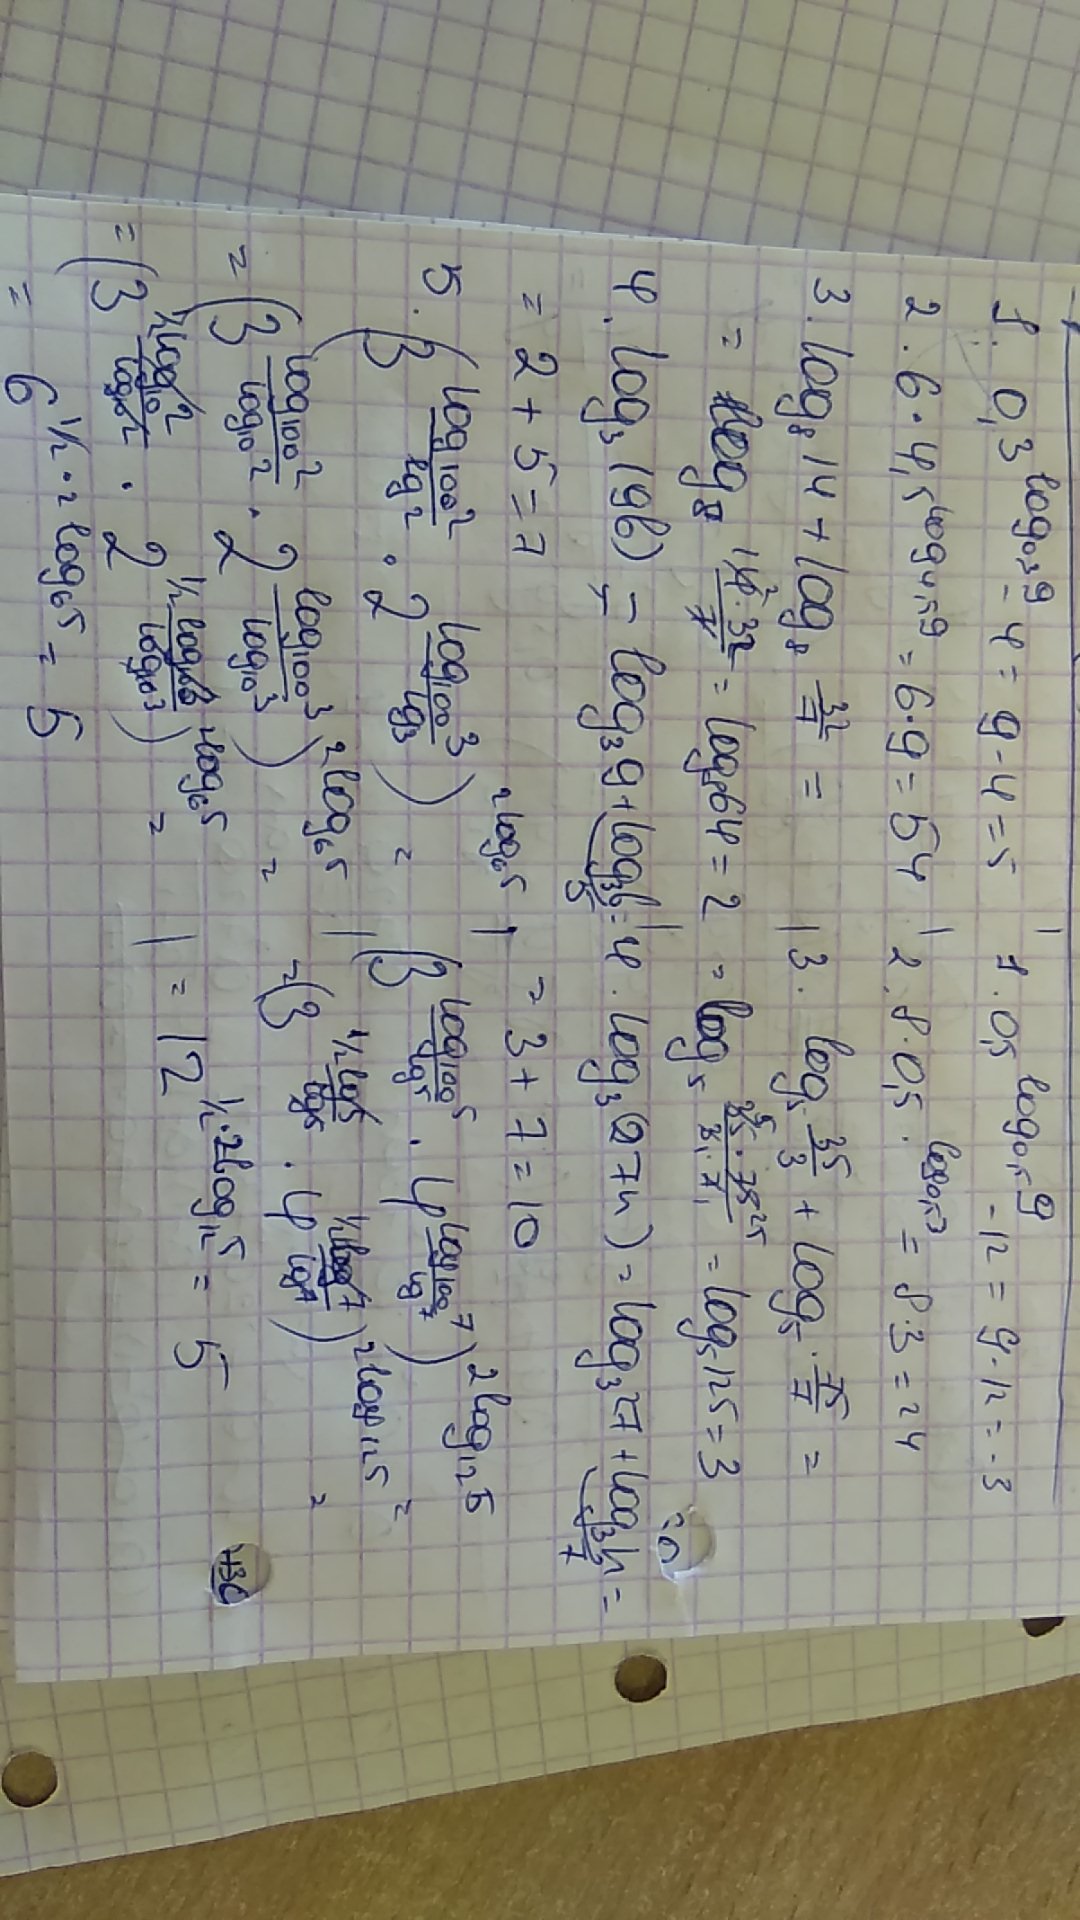 1. 0,3^{log_{0,3} 9} - 4 = 9 - 4 = 5 | 1. 0,5^{log_{0,5} 9} - 12 = 9 - 12 = -3
2. 6 · 4,5^{log_{4,5} 9} = 6·9 = 54 | 2. 8·0,5^{log_{0,5} 3} = 8·3 = 24
3. log_8 14 + log_8 32/7 = | 3. log_5 35/3 + log_5 75/7 =
= log_8 14·32/7 = log_8 64 = 2 = log_5 35·75/3·7 = log_5 125 = 3
4. log_3 (9b) = log_3 9 + log_3 b = | 4. log_3 (27n) = log_3 27 + log_3 n =
5 7
= 2 + 5 = 7 | = 3 + 7 = 10
5. (3^{log_{100} 2 / lg 2} · 2^{log_{100} 3 / lg 3})^{2 log_6 5} = | (3^{log_{100} 5 / lg 5} · 4^{log_{100} 7 / lg 7})^{2 log_{12} 5} =
= (3^{log_{100} 2 / log_{10} 2} · 2^{log_{100} 3 / log_{10} 3})^{2 log_6 5} = | = (3^{1/2 lg 5 / lg 5} · 4^{1/2 lg 7 / lg 7})^{2 log_{12} 5} =
= (3^{1/2 log_{10} 2 / log_{10} 2} · 2^{1/2 log_{10} 3 / log_{10} 3})^{2 log_6 5} = | = 12^{1/2 · 2 log_{12} 5} = 5
= 6^{1/2 · 2 log_6 5} = 5